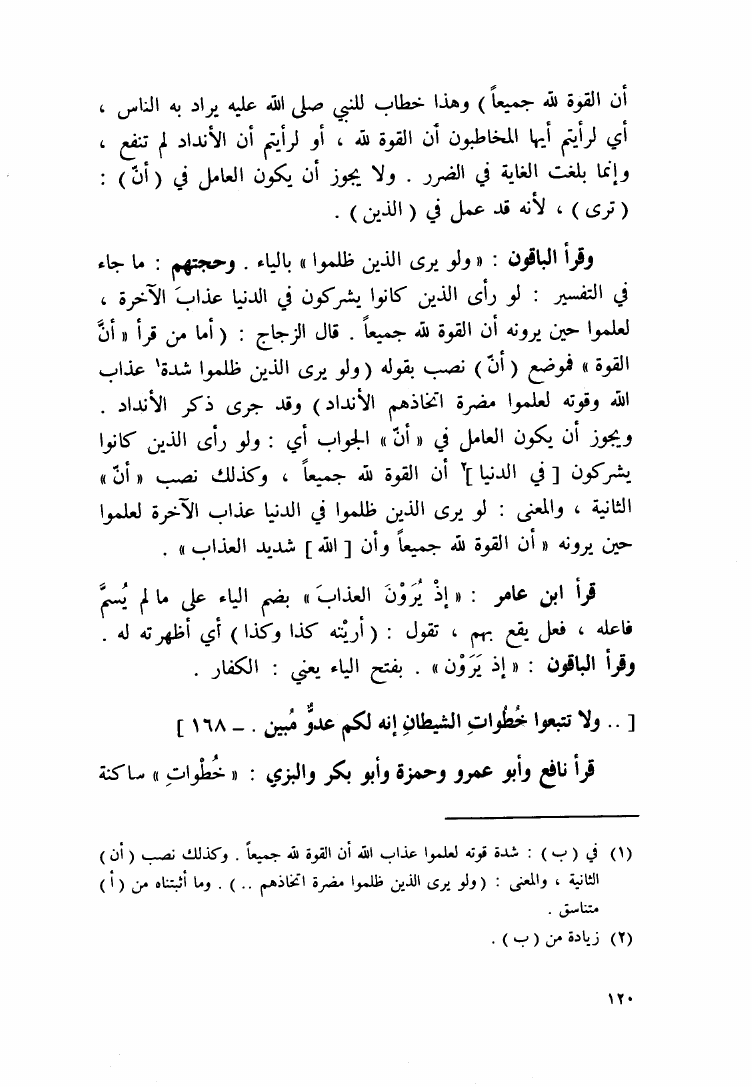 أن القوة لله جميعاً ) وهذا خطاب للنبي صلى الله عليه يراد به الناس ،
أي لرأيتم أيها المخاطبون أن القوة لله ، أو لرأيتم أن الأنداد لم تنفع ،
وإنما بلغت الغاية في الضرر . ولا يجوز أن يكون العامل في ( أنّ ) :
( ترى ) ، لأنه قد عمل في ( الذين ) .
وقرأ الباقون : « ولو يرى الذين ظلموا » بالياء . وحجتهم : ما جاء
في التفسير : لو رأى الذين كانوا يشركون في الدنيا عذابَ الآخرة ،
لعلموا حين يرونه أن القوة لله جميعاً . قال الزجاج : ( أما من قرأ « أنَّ
القوة » فموضع ( أنّ ) نصب بقوله ( ولو يرى الذين ظلموا شدة١ عذاب
الله وقوته لعلموا مضرة اتخاذهم الأنداد ) وقد جرى ذكر الأنداد .
ويجوز أن يكون العامل في « أنّ » الجواب أي : ولو رأى الذين كانوا
يشركون [ في الدنيا ]٢ أن القوة لله جميعاً ، وكذلك نصب « أنّ »
الثانية ، والمعنى : لو يرى الذين ظلموا في الدنيا عذاب الآخرة لعلموا
حين يرونه « أن القوة لله جميعاً وأن [ الله ] شديد العذاب » .
قرأ ابن عامر : « إذْ يُرَوْنَ العذابَ » بضم الياء على ما لم يُسمَّ
فاعله ، فعل يقع بهم ، تقول : ( أريْته كذا وكذا ) أي أظهرته له .
وقرأ الباقون : « إذ يَرَوْن » . بفتح الياء يعني : الكفار .
[ .. ولا تتبعوا خُطُواتِ الشيطانِ إنه لكم عدوٌّ مُبين . ــ ١٦٨ ]
قرأ نافع وأبو عمرو وحمزة وأبو بكر والبزي : « خُطْواتِ » ساكنة
(١) في ( ب ) : شدة قوته لعلموا عذاب الله أن القوة لله جميعاً . وكذلك نصب ( أن )
الثانية ، والمعنى : ( ولو يرى الذين ظلموا مضرة اتخاذهم .. ) . وما أثبتناه من ( أ )
متناسق .
(٢) زيادة من ( ب ) .
١٢٠